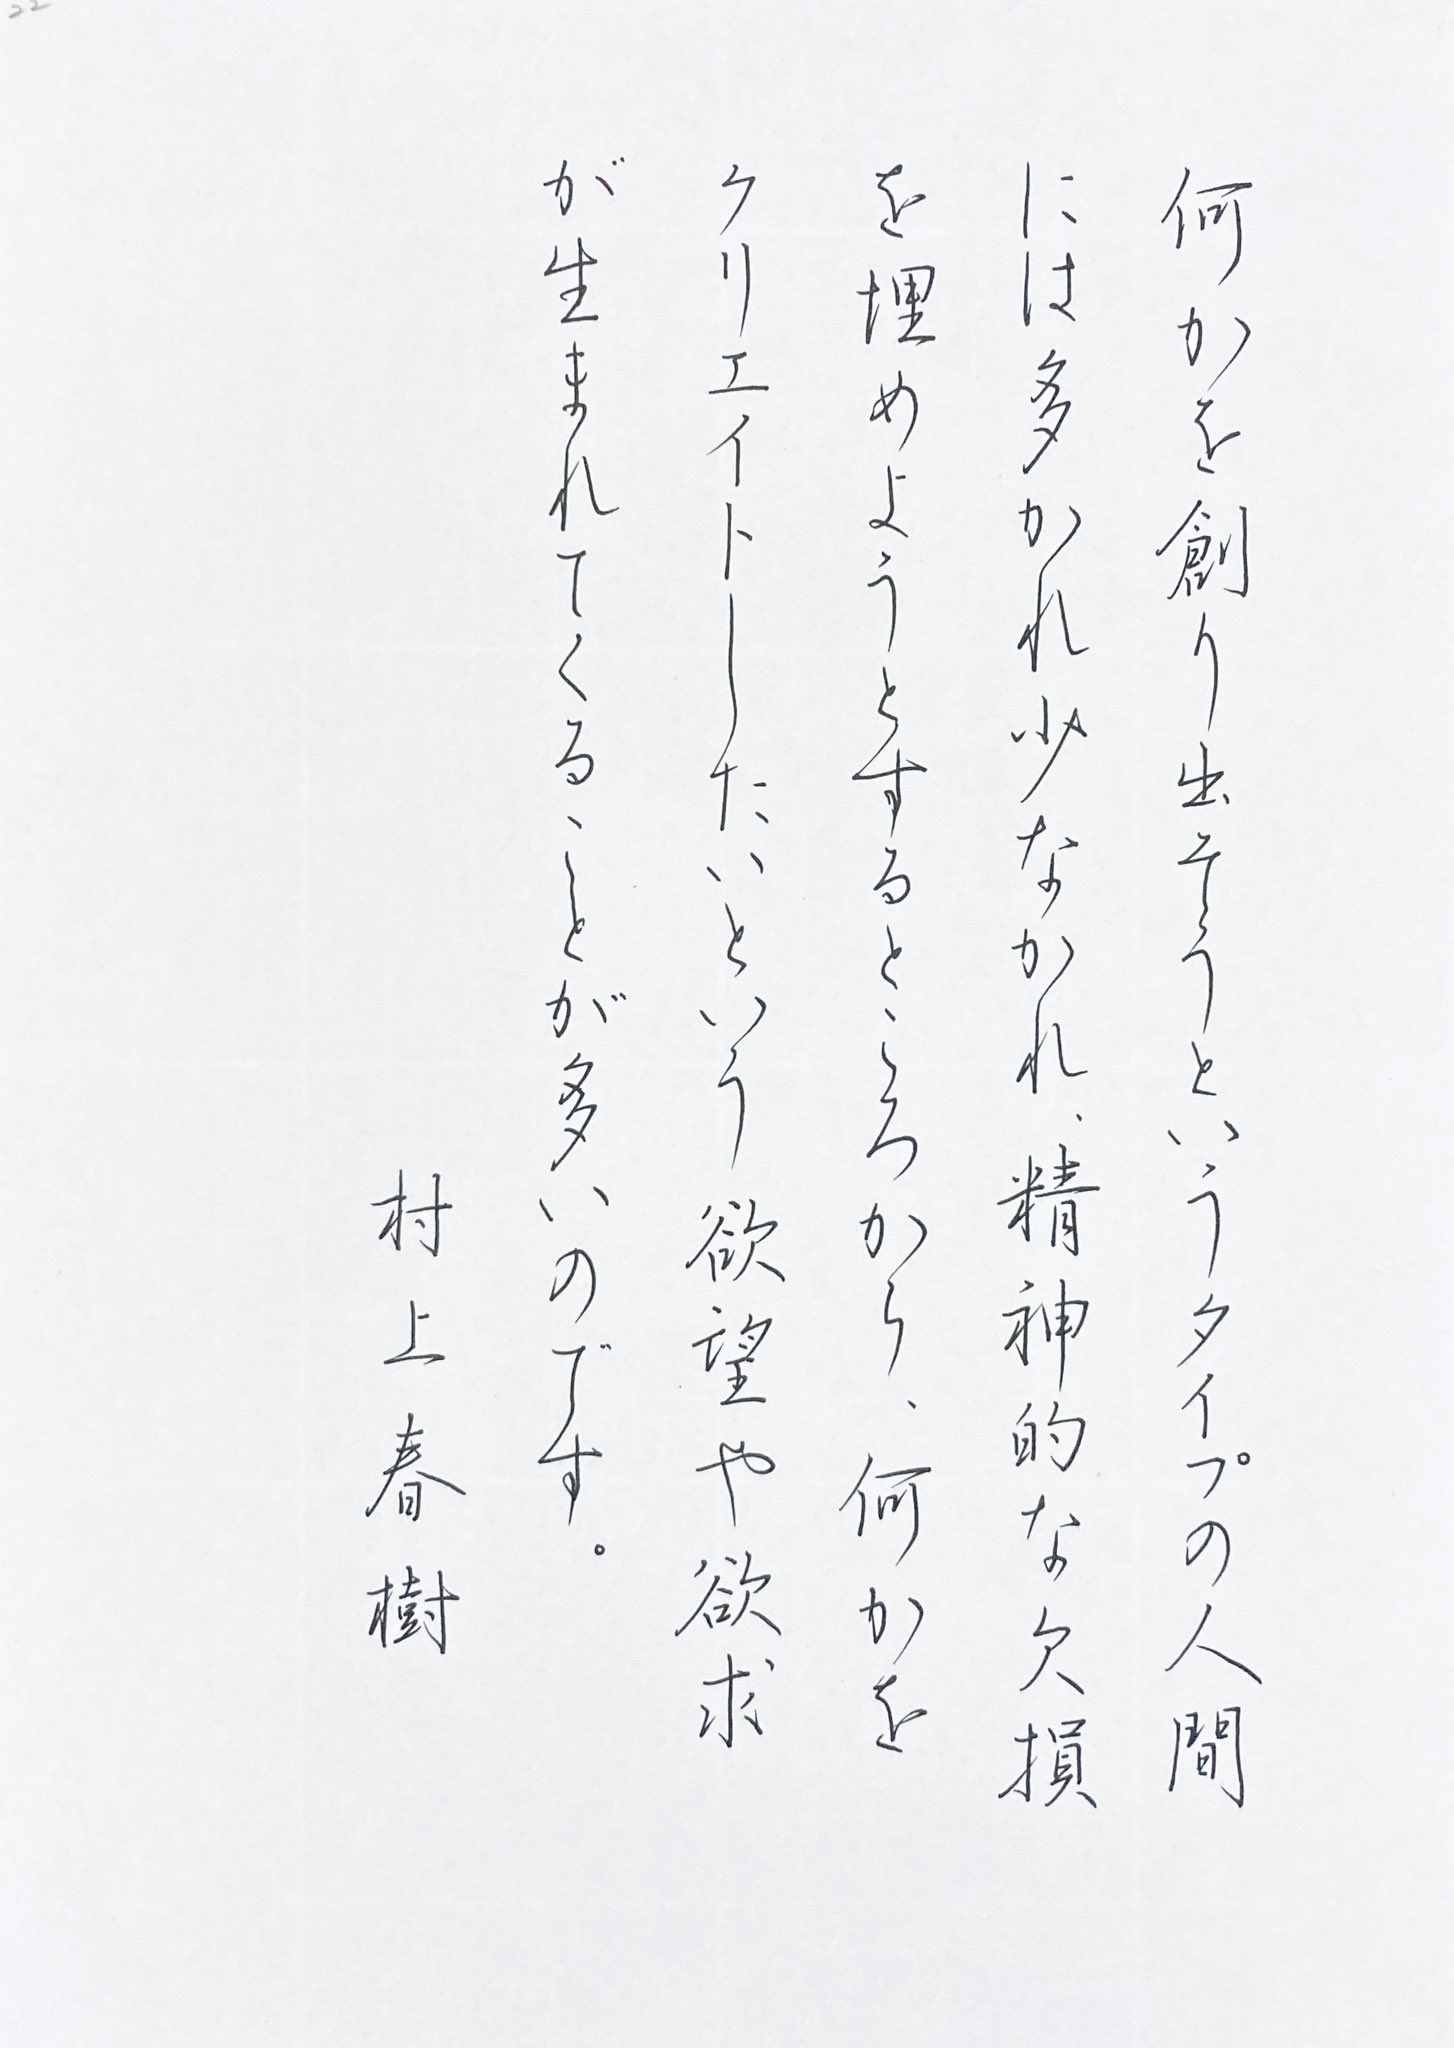 22
何かを創り出そうというタイプの人間
には多かれ少なかれ、精神的な欠損
を埋めようとするところから、何かを
クリエイトしたいという欲望や欲求
が生まれてくることが多いのです。
村上春樹